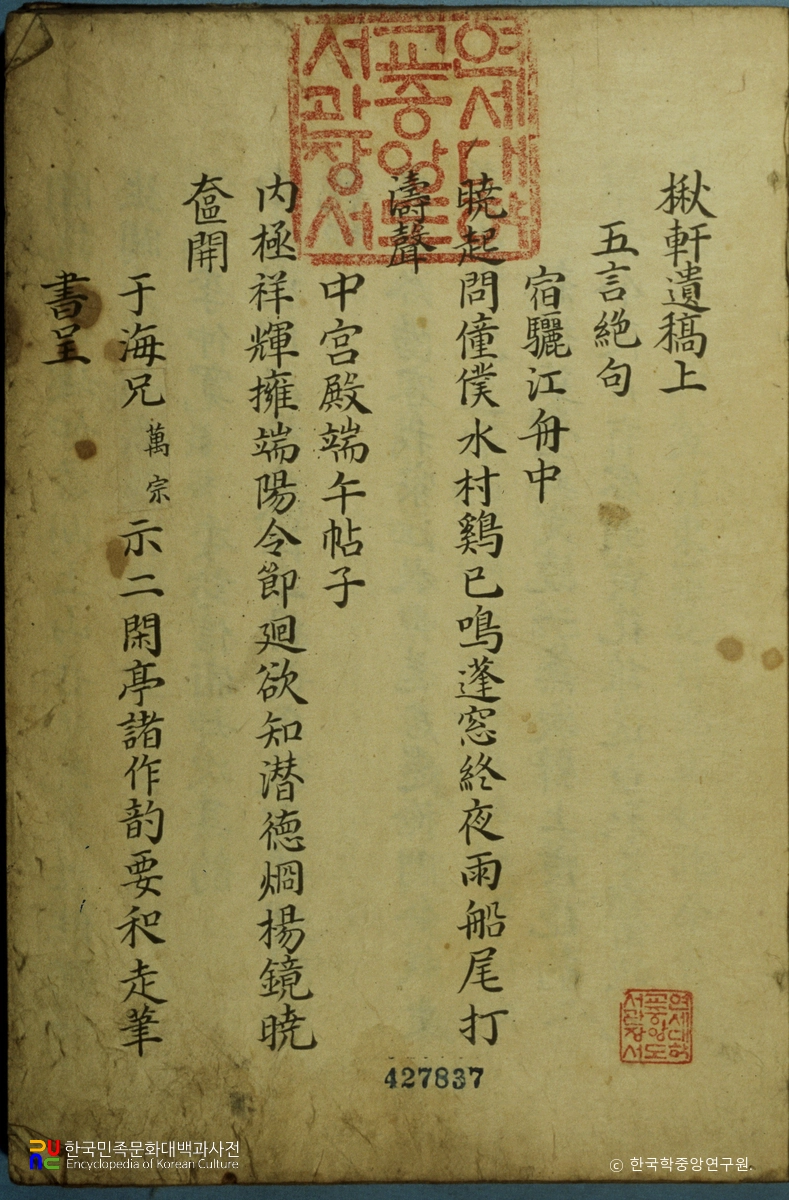 揪軒遺稿上
五言絶句
宿驪江舟中
曉起問僮僕水村鷄已鳴蓬窓終夜雨船尾打
濤聲
中宮殿端午帖子
内極祥輝擁端陽令節廻欲知潜德烱楊鏡曉
奩開
于海兄萬宗示二閑亭諸作韵要和走筆
書呈
연세대학
교중앙도
서관장서
연세대학
교중앙도
서관장서
427837
한국민족문화대백과사전
Encyclopedia of Korean Culture
ⓒ 한국학중앙연구원